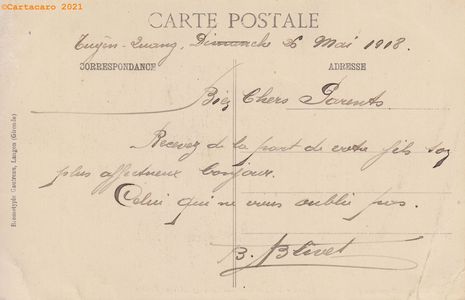 ©Cartacaro 2021
CARTE POSTALE
Tuyên-Quang, Dimanche 26 Mai 1918.
CORRESPONDANCE
ADRESSE
Biens Chers Parents.
Recevez de la part de votre fils son
plus affectueux bonjour.
Celui qui ne vous oublie pas.
B. Blivet
Bromotypie Gautreau, Langon (Gironde)